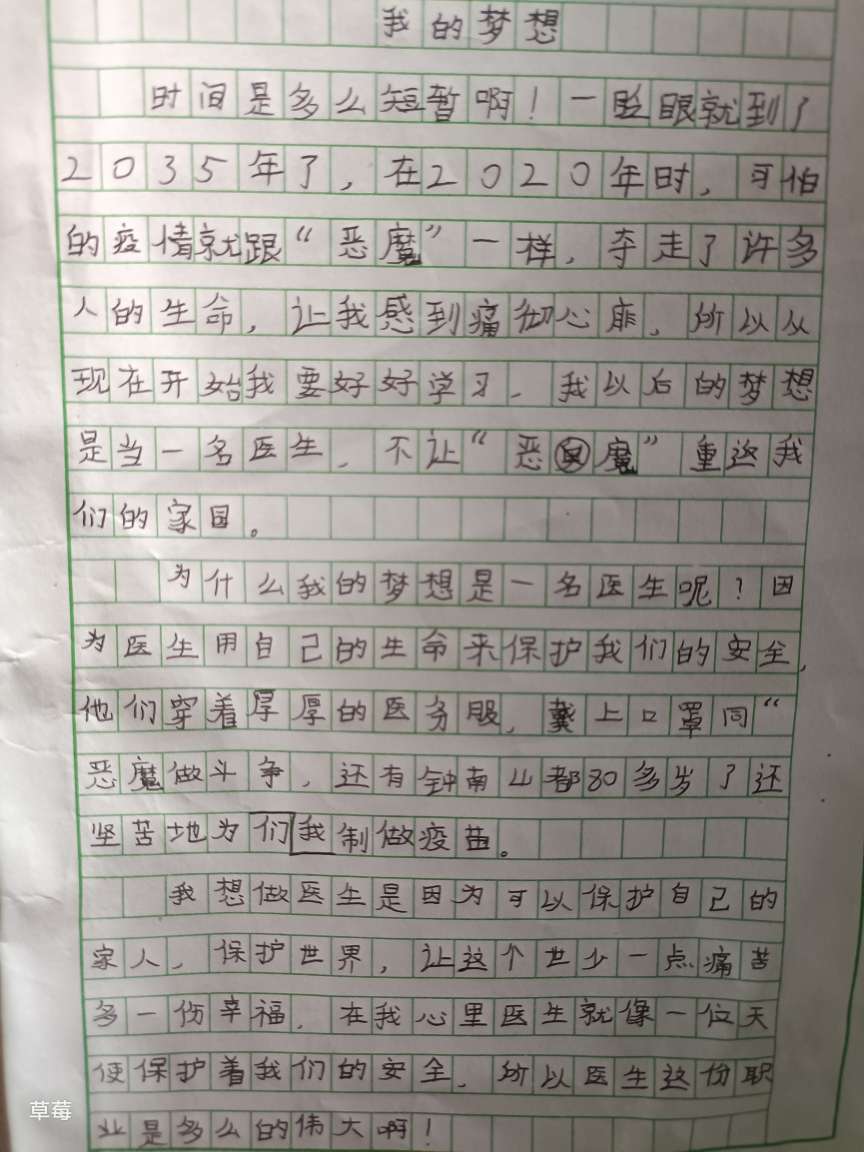 我的梦想
时间是多么短暂啊！一眨眼就到了
2035年了，在2020年时，可怕
的疫情就跟“恶魔”一样，夺走了许多
人的生命，让我感到痛彻心扉，所以从
现在开始我要好好学习，我以后的梦想
是当一名医生，不让“恶魔”重返我
们的家园。
为什么我的梦想是一名医生呢？因
为医生用自己的生命来保护我们的安全，
他们穿着厚厚的医务服，戴上口罩同“
恶魔做斗争，还有钟南山都80多岁了还
坚苦地为们我制做疫苗。
我想做医生是因为可以保护自己的
家人，保护世界，让这个世少一点痛苦
多一份幸福，在我心里医生就像一位天
使保护着我们的安全，所以医生这份职
业是多么的伟大啊！
草莓